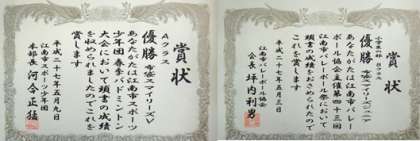 賞状
Aクラス
優勝 布袋スマイリーズV
あなたがたは江南市スポーツ
少年団春季バドミントン
大会において頭書の成績
を収められましたのでこれを
賞します
平成二十七年五月九日
江南市スポーツ少年団
本部長 河合正猛
賞状
小学生の部 Bクラス
優勝 布袋スマイリーズジュニア
あなたがたは江南市バレー
ボール協会主催第四十三回
江南市バレーボール祭において
頭書の成績をおさめられたので
これを賞します
平成二十七年五月三日
江南市バレーボール協会
会長 坪内利男